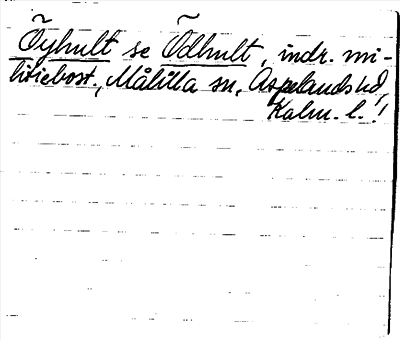 Öyhult se Ödhult, indr. mi-
litiebost., Målilla sn, Aspelands hd,
Kalm. l.!